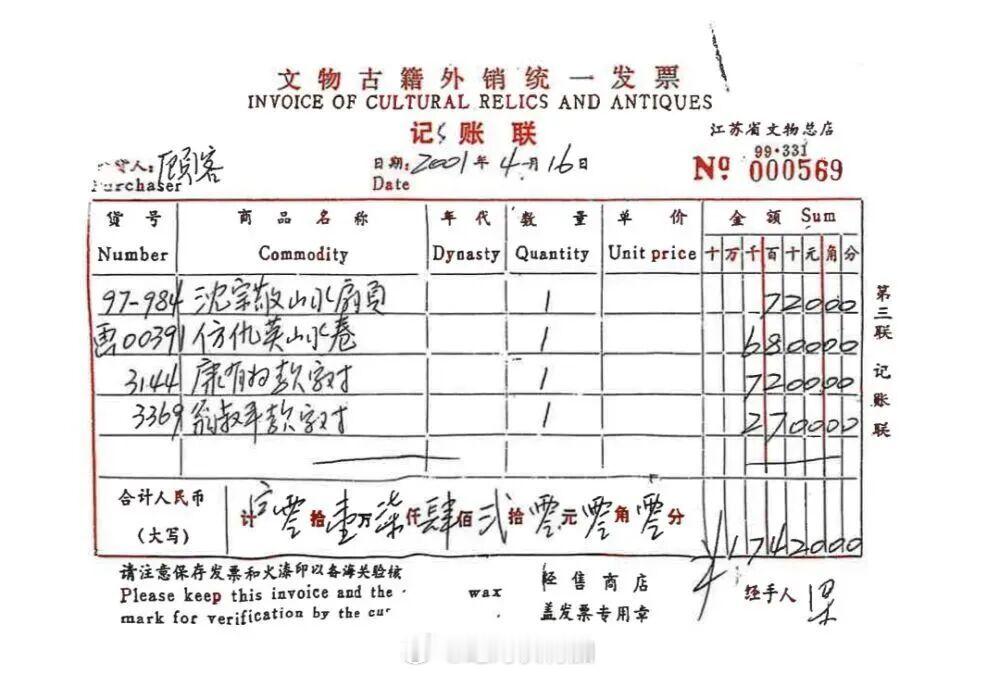 文物古籍外销统一发票
INVOICE OF CULTURAL RELICS AND ANTIQUES
记账联
江苏省文物总店
99·331
Nº 000569
货人: 顾客
Purchaser
日期: 2001年4月16日
Date
货号 商品名称 年代 数量 单价 金额 Sum
Number Commodity Dynasty Quantity Unit price 十万千百十元角分
97-984 沈宗敬山水扇頁 1 72000
画00391 仿仇英山水卷 1 680000
3144 康有为款字对 1 720000
3369 翁叔平款字对 1 270000
合计人民币
(大写)
计 零拾壹万柒仟肆佰贰拾零元零角零分
¥1742000
请注意保存发票和火漆印以各海关验核
Please keep this invoice and the wax
mark for verification by the cu
经售商店
盖发票专用章
经手人
第三联 记账联